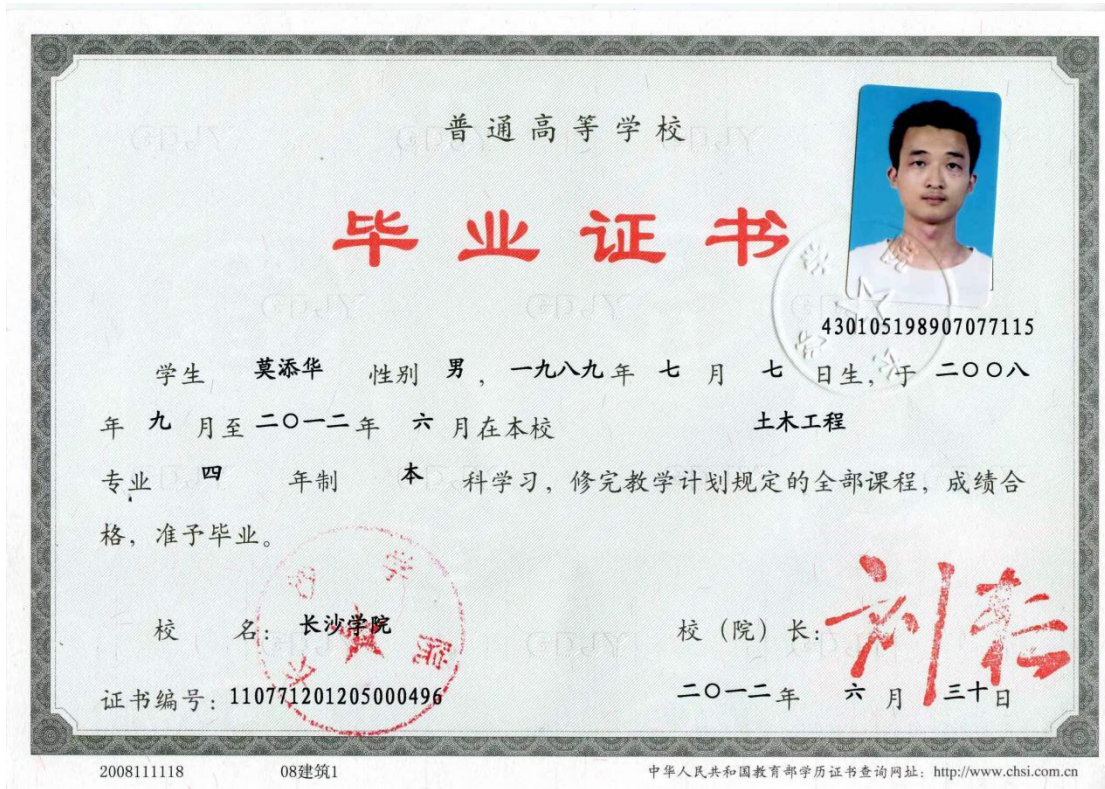 普通高等学校
毕业证书
430105198907077115
学生 莫添华 性别 男，一九八九年 七 月 七 日生，于 二〇〇八
年 九 月至 二〇一二年 六 月在本校 土木工程
专业 四 年制 本 科学习，修完教学计划规定的全部课程，成绩合
格，准予毕业。
校 名：长沙学院
校（院）长：
证书编号：110771201205000496
二〇一二年 六 月 三十日
2008111118 08建筑1 中华人民共和国教育部学历证书查询网址：http://www.chsi.com.cn